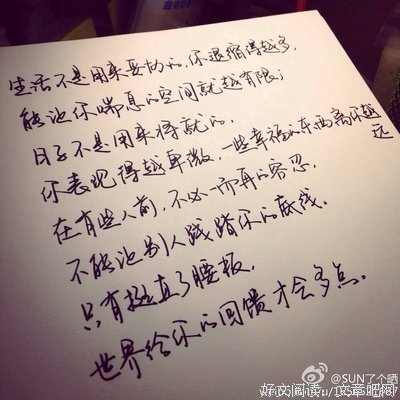 生活不是用来妥协的,你退缩得越多,
能让你喘息的空间就越有限;
日子不是用来将就的,
你表现得越卑微,一些幸福的东西离你越
远
在有些人前,不必一而再的容忍,
不能让别人践踏你的底线。
只有挺直了腰板,
世界给你的回馈才会多点。
@SUN了个晒
好文阅读:文章吧网